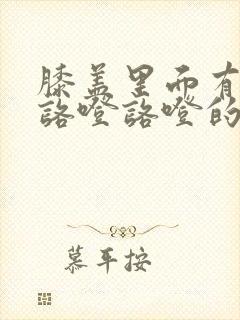 膝盖里面有
咯噔咯噔的
慕平按